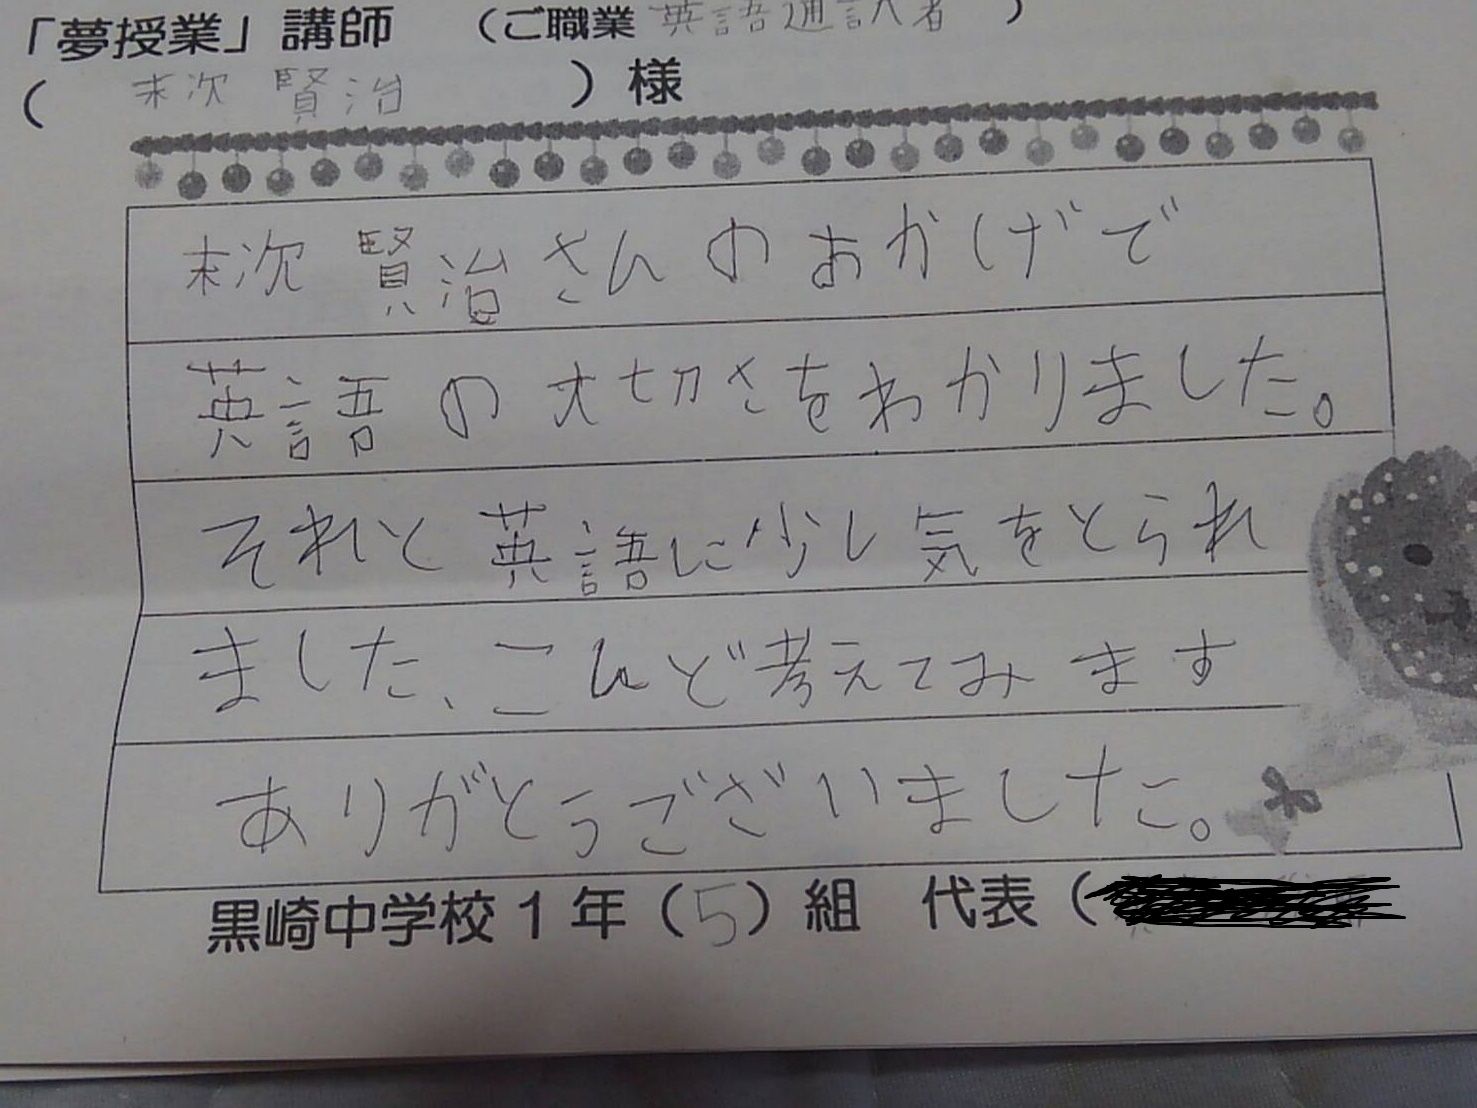 「夢授業」講師 (ご職業 英語通訳者 )
( 末次 賢治 ) 様
末次 賢治さんのおかげで
英語の大切さをわかりました。
それと英語に少し気をとられ
ました、こんど考えてみます
ありがとうございました。
黒崎中学校1年(5)組 代表(